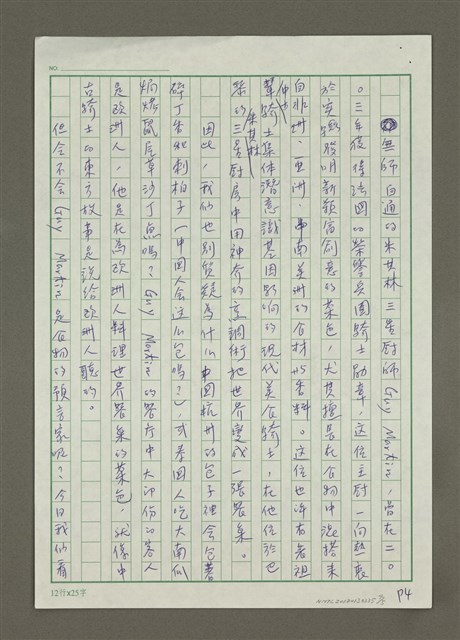 NO.
無師自通的米其林三星廚師 Guy Martin,曾在二〇
〇三年獲得法國的榮譽兵團騎士勛章,這位主廚一向熱衷
於實驗發明新穎富創意的菜色,尤其擅長在食物中混搭來
自非洲、亞洲、中南美洲的食材與香料。這位也許有著祖
中古
輩騎士集體潛意識基因影响的現代美食騎士,在他位於巴
米其林
黎的三星廚房中用神奇的烹調術把世界變成一張餐桌。
因此,我們也別質疑為什么中國杭州的包子裡會包著
碎丁香和刺柏子(中國人會這么包嗎?),或泰國人吃大南瓜
焗烤鼠尾草沙丁魚嗎?Guy Martin 的餐廳中大部份的客人
是欧洲人,他是在為欧洲人料理世界餐桌的菜色,就像中
古騎士的東方故事是說給欧洲人聽的。
但会不会 Guy Martin 是食物的預言家呢?今日我們看
12行x25字
P4